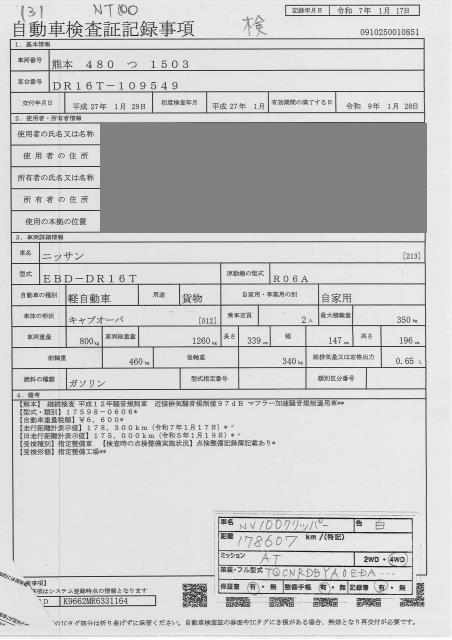 (31 NT100 検
記録年月日 令和 7年 1月 17日
自動車検査証記録事項
0910250010851
1. 基本情報
車両番号 熊本 480 つ 1503
車台番号 DR16T-109549
交付年月日 平成 27年 1月 29日 初度検査年月 平成 27年 1月 有効期間の満了する日 令和 9年 1月 28日
2. 使用者・所有者情報
使用者の氏名又は名称
使用者の住所
所有者の氏名又は名称
所有者の住所
使用の本拠の位置
3. 車両詳細情報
車名 ニッサン [213]
型式 EBD-DR16T 原動機の型式 R06A
自動車の種別 軽自動車 用途 貨物 自家用・事業用の別 自家用
車体の形状 キャブオーバ [012] 乗車定員 2人 最大積載量 350kg
車両重量 800kg 車両総重量 1260kg 長さ 339cm 幅 147cm 高さ 196cm
前軸重 460kg 後軸重 340kg 総排気量又は定格出力 0.65L
燃料の種類 ガソリン 型式指定番号 類別区分番号
4. 備考
【熊本】 継続検査 平成12年騒音規制車 近接排気騒音規制値97dB マフラー加速騒音規制適用車**
【型式・類別】17598-0606*
【自動車重量税額】¥6,600*
【走行距離計表示値】178,300km(令和7年1月17日)*
【旧走行距離計表示値】175,000km(令和5年1月19日)*
【受検種別】指定整備車 【検査時の点検整備実施状況】点検整備記録簿記載あり*
【受検形態】指定整備工場**
車名 NV100クリッパー 色 白
距離 178607 km/(特記)
ミッション AT 2WD・4WD
架装・フル型式 TQCNRDDYA0EDA---
保証書 有・無 整備手帳 有・無 記録簿 有・無
事項】
はシステム登録時点の情報となります
D K9662MR6331164
のICタグ部分は折り曲げずに保管ください。自動車検査証の券面やICタグにき損がある場合、無効となり再交付が必要です。